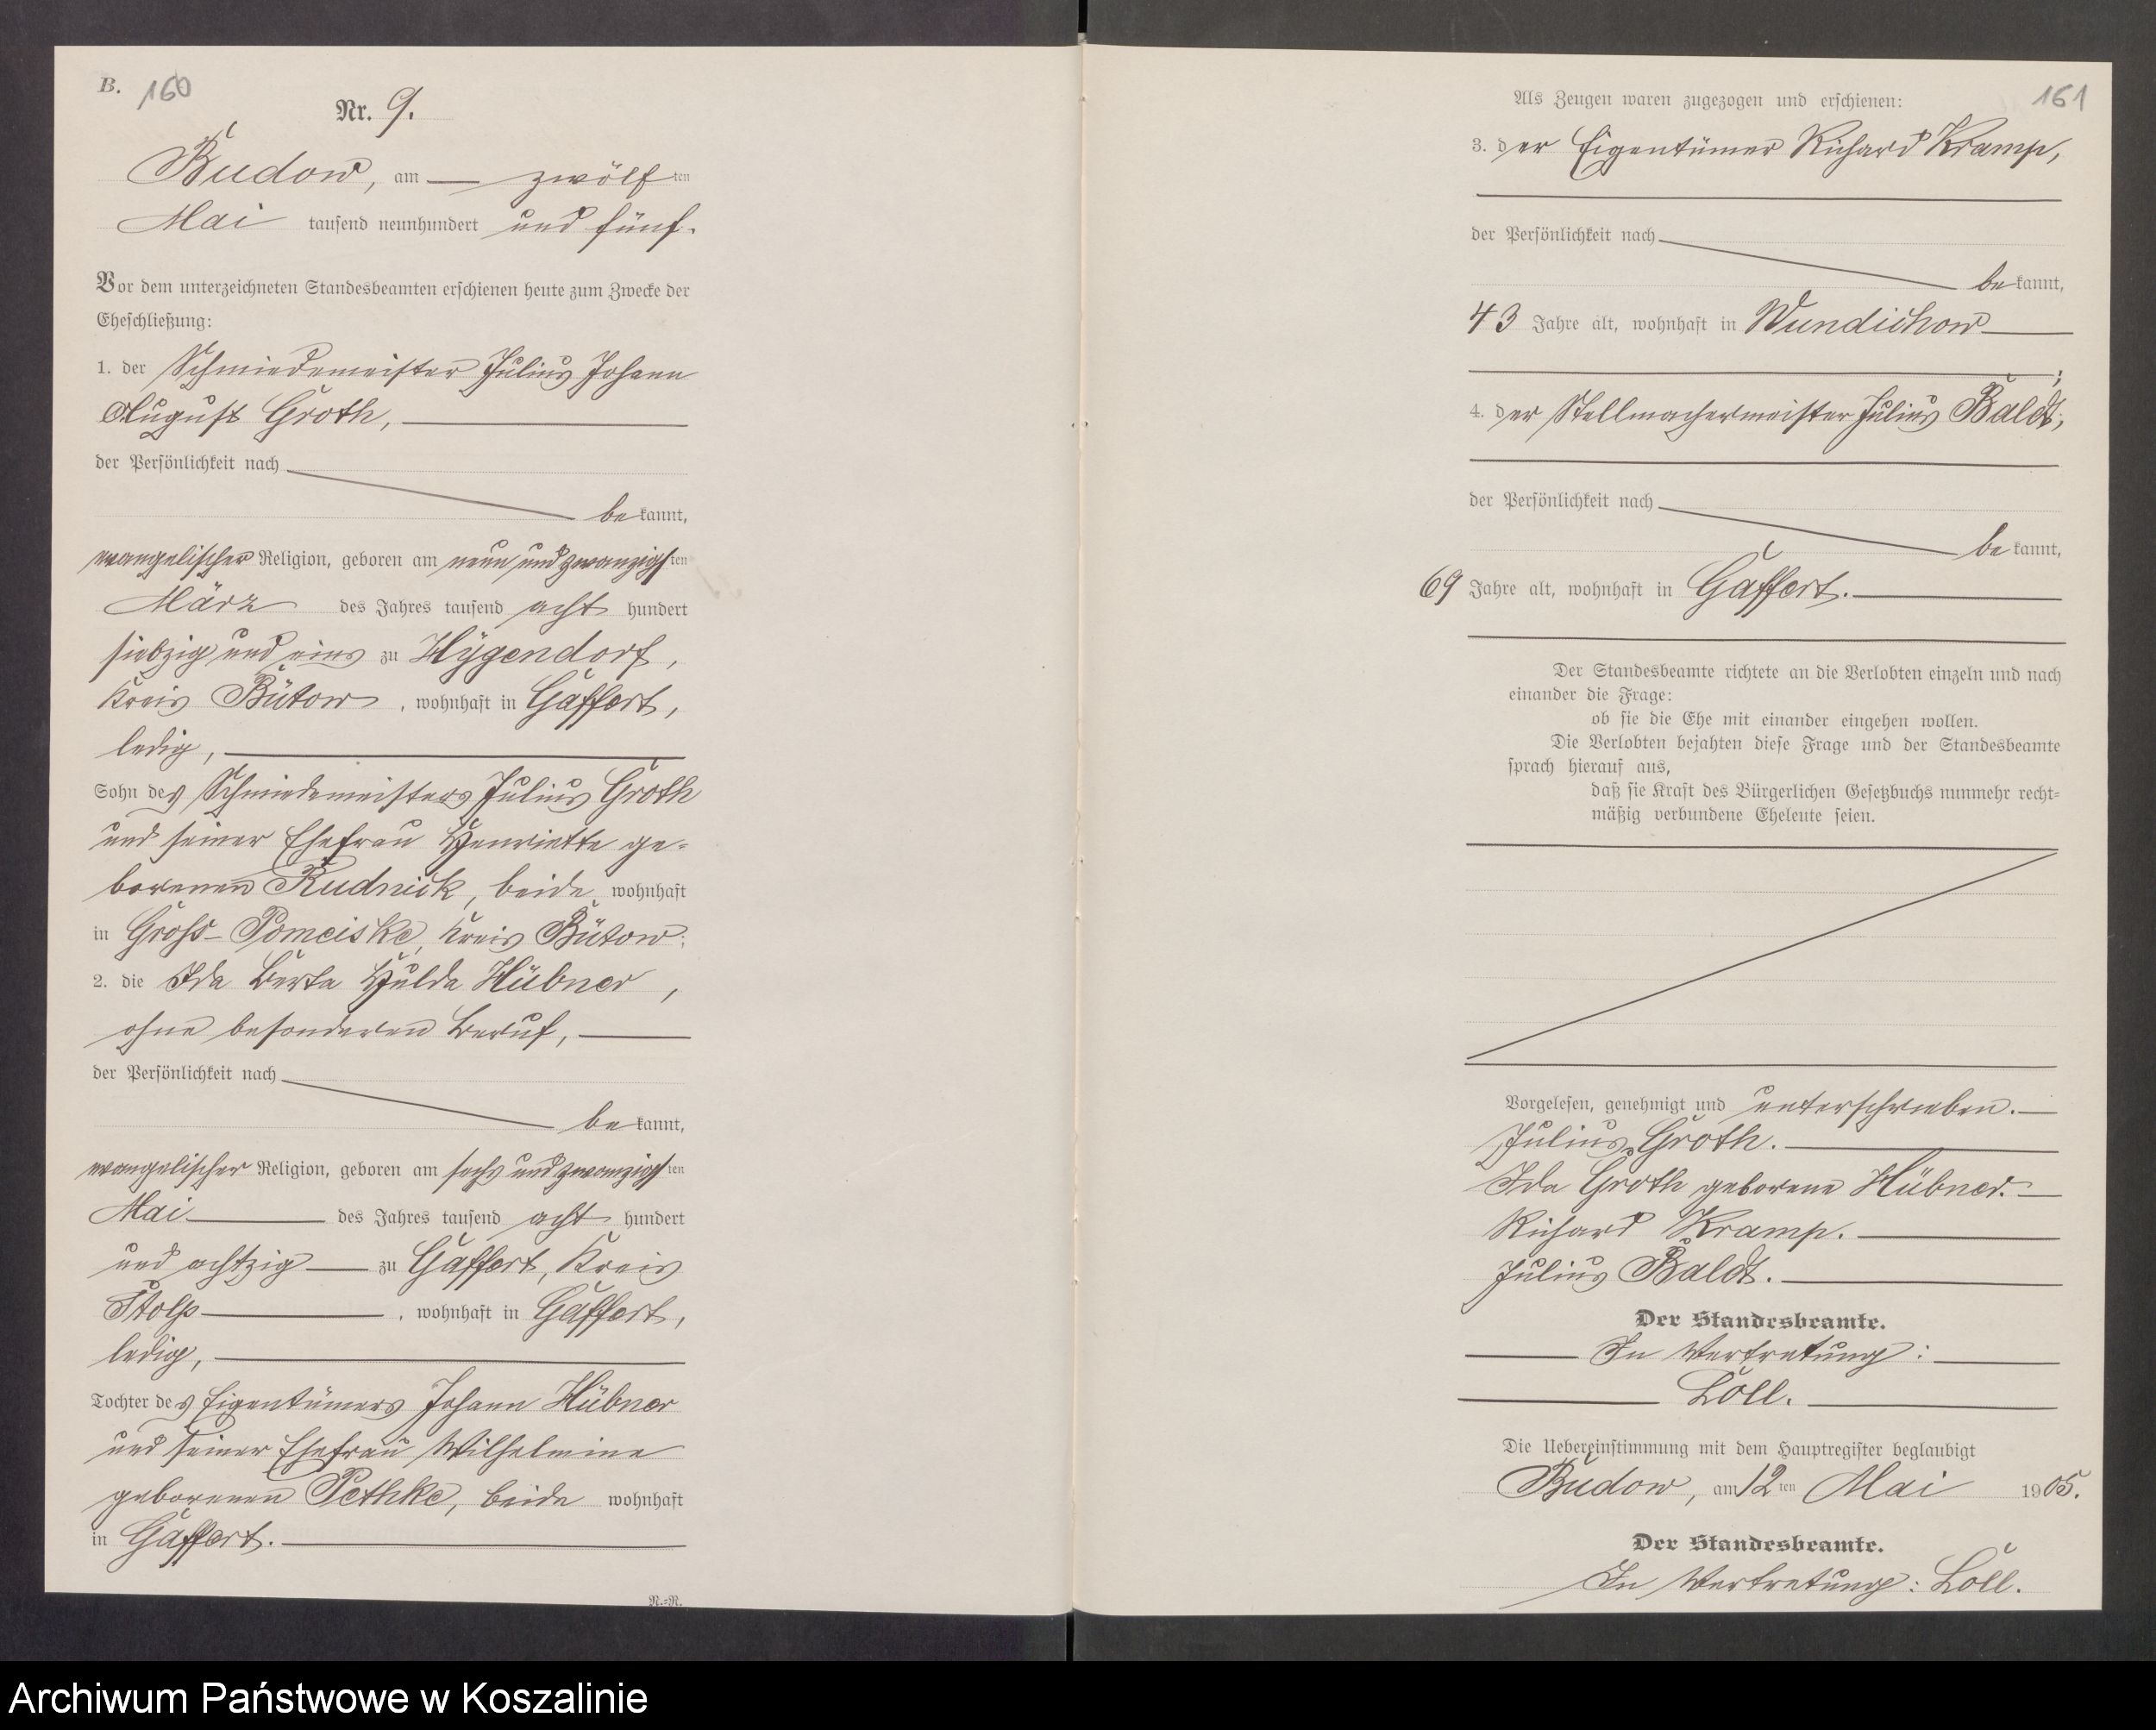 B. 160
Nr. 9.
Budow, am zwölften
Mai tausend neunhundert und fünf.
Vor dem unterzeichneten Standesbeamten erschienen heute zum Zwecke der
Eheschließung:
1. der Schmiedemeister Julius Johann
August Groth,
der Persönlichkeit nach
bekannt,
evangelischer Religion, geboren am neun und zwanzigsten
März des Jahres tausend acht hundert
siebzig und eins zu Hygendorf,
Kreis Bütow, wohnhaft in Gaffert,
ledig,
Sohn des Schmiedemeisters Julius Groth
und seiner Ehefrau Henriette ge-
borenen Rudnick, beide wohnhaft
in Gross-Pomeiske, Kreis Bütow;
2. die Ida Berta Hulda Hübner,
ohne besonderen Beruf,
der Persönlichkeit nach
bekannt,
evangelischer Religion, geboren am sechs und zwanzigsten
Mai des Jahres tausend acht hundert
und achtzig zu Gaffert, Kreis
Stolp, wohnhaft in Gaffert,
ledig,
Tochter des Eigentümers Johann Hübner
und seiner Ehefrau Wilhelmine
geborenen Pethke, beide wohnhaft
in Gaffert.
N.-N.
161
Als Zeugen waren zugezogen und erschienen:
3. der Eigentümer Richard Kramp,
der Persönlichkeit nach
bekannt,
43 Jahre alt, wohnhaft in Wundichow
;
4. der Stellmachermeister Julius Baldt,
der Persönlichkeit nach
bekannt,
69 Jahre alt, wohnhaft in Gaffert.
Der Standesbeamte richtete an die Verlobten einzeln und nach
einander die Frage:
ob sie die Ehe mit einander eingehen wollen.
Die Verlobten bejahten diese Frage und der Standesbeamte
sprach hierauf aus,
daß sie Kraft des Bürgerlichen Gesetzbuchs nunmehr recht-
mäßig verbundene Eheleute seien.
Vorgelesen, genehmigt und unterschrieben.
Julius Groth.
Ida Groth geborene Hübner.
Richard Kramp.
Julius Baldt.
Der Standesbeamte.
In Vertretung:
Löll.
Die Uebereinstimmung mit dem Hauptregister beglaubigt
Budow, am 12ten Mai 1905.
Der Standesbeamte.
In Vertretung: Löll.
Archiwum Państwowe w Koszalinie